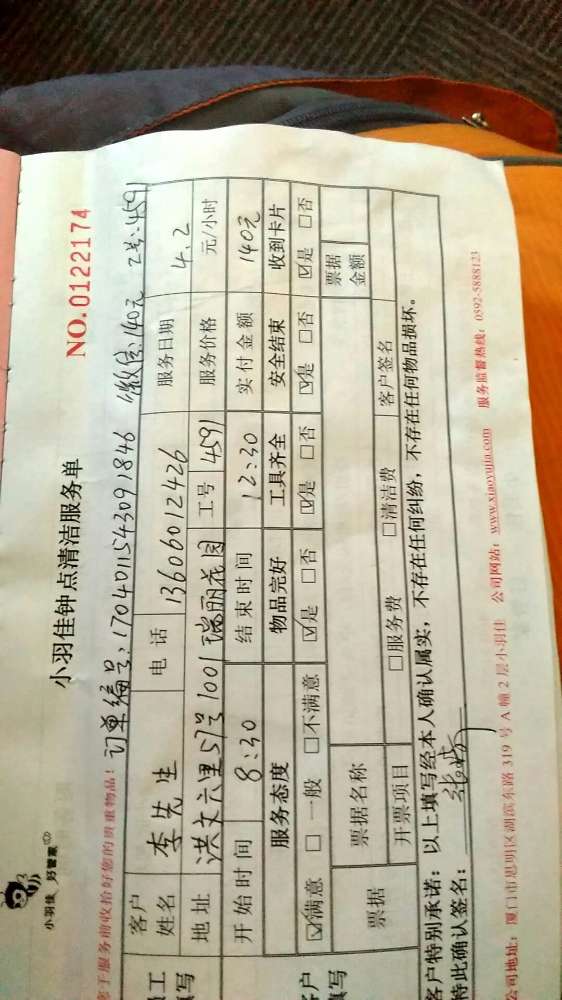 小羽佳 好管家
小羽佳钟点清洁服务单
NO.0122174
于服务前收拾好您的贵重物品!
订单编号:1704011543091846 微信:140元 工号:4591
客户姓名 李先生 电话 13606012426 服务日期 4.2
地址 洪文六里57号1001 瑞丽花园 工号 4591 服务价格 元/小时
开始时间 8:30 结束时间 12:30 实付金额 140元
服务态度 物品完好 工具齐全 安全结束 收到卡片
☑满意 □一般 □不满意 ☑是 □否 ☑是 □否 ☑是 □否 ☑是 □否
票据 票据名称 票据金额
开票项目 □服务费 □清洁费 客户签名
客户特别承诺:以上填写经本人确认属实,不存在任何纠纷,不存在任何物品损坏。
特此确认签名:
公司地址:厦门市思明区湖滨东路319号A幢2层小羽佳 公司网站:www.xiaoyujia.com 服务监督热线:0592-5888123